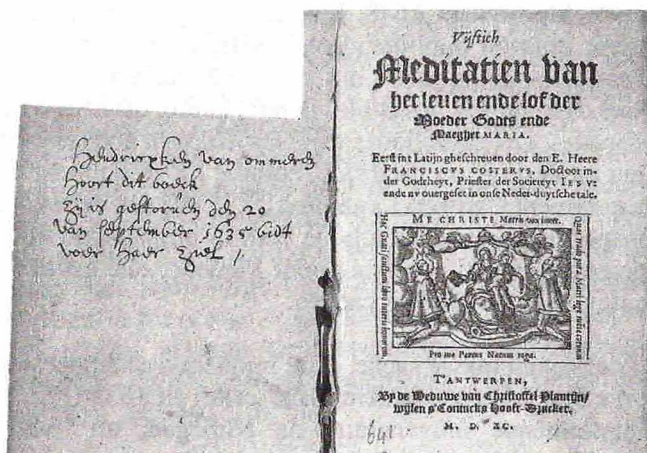 Hendricxken van ommeren
hoort dit boeck
zij is gestoruen den 20
van september 1635 bidt
voer haer ziel /
Vijftich
Meditatien van
het leuen ende lof der
Moeder Godts ende
Maeghet MARIA.
Eerst int Latijn gheschreuen door den E. Heere
FRANCISCVS COSTERVS, Doctoor in-
der Godtheyt, Priester der Societeyt IESV:
ende nv ouergeset in onse Neder-duytsche tale.
ME CHRISTE Matris
Hac Gnati
Pro me Parens Natum roga.
T'ANTWERPEN,
By de Weduwe van Christoffel Plantijn/
wijlen s'Conincks Hooft-Drucker.
M. D. XC.
641